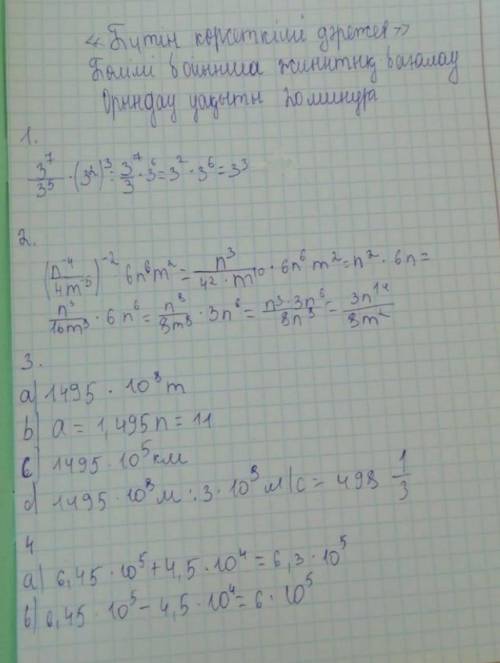 « Бүтін көрсеткішті дәреже»
Бөлімі бойынша жиынтық бағалау
Орындау уақыты 20 минута
1.
3^7/3^5 · (3^2)^3 = 3^7/3 · 3^6 = 3^2 · 3^6 = 3^3
2.
(n^-4/4m^-5)^-2 6n^6m^2 = n^3/4^2 · m^10 · 6n^6 m^2 = n^2 · 6n =
n^3/16m^3 · 6n^6 = n^8/8m^8 · 3n^6 = n^3 · 3n^6/8n^3 = 3n^14/8m^2
3.
a) 1495 · 10^8 m
b) a = 1,495 n = 11
c) 1495 · 10^5 км
d) 1495 · 10^8 м : 3 · 10^8 м/с = 498 1/3
4
a) 6,45 · 10^5 + 4,5 · 10^4 = 6,3 · 10^5
b) 6,45 · 10^5 - 4,5 · 10^4 = 6 · 10^5